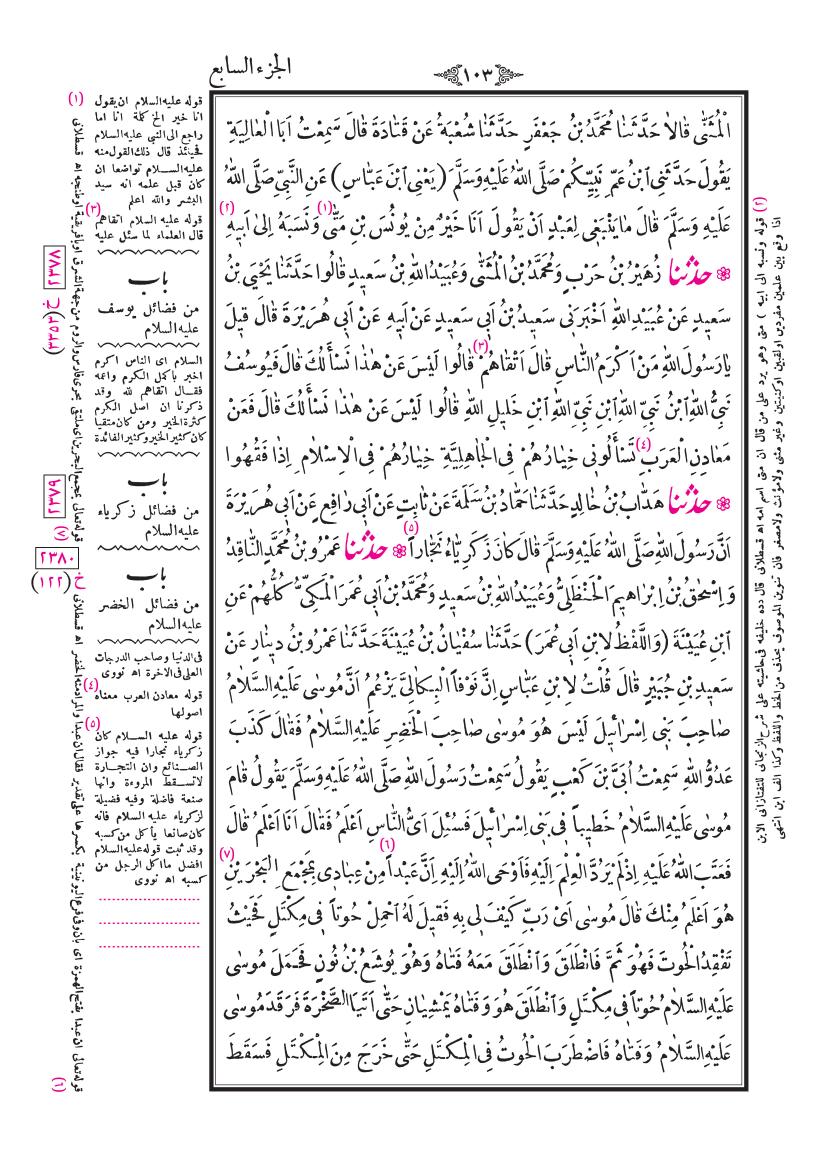 الجزء السابع
١٠٣
الْمُثَنّٰى قَالَا حَدَّثَنَا مُحَمَّدُ بْنُ جَعْفَرٍ حَدَّثَنَا شُعْبَةُ عَنْ قَتَادَةَ قَالَ سَمِعْتُ اَبَا الْعَالِيَةِ
يَقُولُ حَدَّثَنِى ابْنُ عَمِّ نَبِيِّكُمْ صَلَّى اللهُ عَلَيْهِ وَسَلَّمَ (يَعْنِى ابْنَ عَبَّاسٍ) عَنِ النَّبِىِّ صَلَّى اللهُ
عَلَيْهِ وَسَلَّمَ قَالَ مَا يَنْبَغِى لِعَبْدٍ اَنْ يَقُولَ اَنَا خَيْرٌ مِنْ يُونُسَ بْنِ مَتّٰى (١) وَنَسَبَهُ اِلٰى اَبِيهِ (٢)
❁ حدثنا زُهَيْرُ بْنُ حَرْبٍ وَمُحَمَّدُ بْنُ الْمُثَنّٰى وَعُبَيْدُ اللهِ بْنُ سَعِيدٍ قَالُوا حَدَّثَنَا يَحْيَى بْنُ
سَعِيدٍ عَنْ عُبَيْدِ اللهِ اَخْبَرَنِى سَعِيدُ بْنُ اَبِى سَعِيدٍ عَنْ اَبِيهِ عَنْ اَبِى هُرَيْرَةَ قَالَ قِيلَ
يَا رَسُولَ اللهِ مَنْ اَكْرَمُ النَّاسِ قَالَ اَتْقَاهُمْ (٣) قَالُوا لَيْسَ عَنْ هٰذَا نَسْأَلُكَ قَالَ فَيُوسُفُ
نَبِىُّ اللهِ ابْنُ نَبِىِّ اللهِ ابْنِ نَبِىِّ اللهِ ابْنِ خَلِيلِ اللهِ قَالُوا لَيْسَ عَنْ هٰذَا نَسْأَلُكَ قَالَ فَعَنْ
مَعَادِنِ الْعَرَبِ (٤) تَسْأَلُونِى خِيَارُهُمْ فِى الْجَاهِلِيَّةِ خِيَارُهُمْ فِى الْاِسْلَامِ اِذَا فَقُهُوا
❁ حدثنا هَدَّابُ بْنُ خَالِدٍ حَدَّثَنَا حَمَّادُ بْنُ سَلَمَةَ عَنْ ثَابِتٍ عَنْ اَبِى رَافِعٍ عَنْ اَبِى هُرَيْرَةَ
اَنَّ رَسُولَ اللهِ صَلَّى اللهُ عَلَيْهِ وَسَلَّمَ قَالَ كَانَ زَكَرِيَّاءُ نَجَّاراً (٥) ❁ حدثنا عَمْرُو بْنُ مُحَمَّدٍ النَّاقِدُ
وَاِسْحٰقُ بْنُ اِبْرَاهِيمَ الْحَنْظَلِىُّ وَعُبَيْدُ اللهِ بْنُ سَعِيدٍ وَمُحَمَّدُ بْنُ اَبِى عُمَرَ الْمَكِّىُّ كُلُّهُمْ عَنِ
ابْنِ عُيَيْنَةَ (وَاللَّفْظُ لِابْنِ اَبِى عُمَرَ) حَدَّثَنَا سُفْيَانُ بْنُ عُيَيْنَةَ حَدَّثَنَا عَمْرُو بْنُ دِينَارٍ عَنْ
سَعِيدِ بْنِ جُبَيْرٍ قَالَ قُلْتُ لِابْنِ عَبَّاسٍ اِنَّ نَوْفاً الْبِكَالِىَّ يَزْعُمُ اَنَّ مُوسٰى عَلَيْهِ السَّلَامُ
صَاحِبَ بَنِى اِسْرَائِيلَ لَيْسَ هُوَ مُوسٰى صَاحِبَ الْخَضِرِ عَلَيْهِ السَّلَامُ فَقَالَ كَذَبَ
عَدُوُّ اللهِ سَمِعْتُ اُبَىَّ بْنَ كَعْبٍ يَقُولُ سَمِعْتُ رَسُولَ اللهِ صَلَّى اللهُ عَلَيْهِ وَسَلَّمَ يَقُولُ قَامَ
مُوسٰى عَلَيْهِ السَّلَامُ خَطِيباً فِى بَنِى اِسْرَائِيلَ فَسُئِلَ اَىُّ النَّاسِ اَعْلَمُ فَقَالَ اَنَا اَعْلَمُ قَالَ
فَعَتَبَ اللهُ عَلَيْهِ اِذْ لَمْ يَرُدَّ الْعِلْمَ اِلَيْهِ فَاَوْحَى اللهُ اِلَيْهِ اِنَّ عَبْداً (٦) مِنْ عِبَادِى بِمَجْمَعِ الْبَحْرَيْنِ (٧)
هُوَ اَعْلَمُ مِنْكَ قَالَ مُوسٰى اَىْ رَبِّ كَيْفَ لِى بِهِ فَقِيلَ لَهُ احْمِلْ حُوتاً فِى مِكْتَلٍ فَحَيْثُ
تَفْقِدُ الْحُوتَ فَهُوَ ثَمَّ فَانْطَلَقَ وَانْطَلَقَ مَعَهُ فَتَاهُ وَهُوَ يُوشَعُ بْنُ نُونٍ فَحَمَلَ مُوسٰى
عَلَيْهِ السَّلَامُ حُوتاً فِى مِكْتَلٍ وَانْطَلَقَ هُوَ وَفَتَاهُ يَمْشِيَانِ حَتّٰى اَتَيَا الصَّخْرَةَ فَرَقَدَ مُوسٰى
عَلَيْهِ السَّلَامُ وَفَتَاهُ فَاضْطَرَبَ الْحُوتُ فِى الْمِكْتَلِ حَتّٰى خَرَجَ مِنَ الْمِكْتَلِ فَسَقَطَ
(١) قوله عليه السلام ان يقول
انا خير الخ كلمة انا اما
راجع الى النبى عليه السلام
فحينئذ قال ذلك القول منه
عليه السلام تواضعا ان
كان قبل علمه انه سيد
البشر والله اعلم
(٣) قوله عليه السلام اتقاهم
قال العلماء لما سئل عليه
باب
من فضائل يوسف
عليه السلام
السلام اى الناس اكرم
اخبر باكمل الكرم واعمه
فقال اتقاهم لله وقد
ذكرنا ان اصل الكرم
كثرة الخير ومن كان متقيا
كان كثير الخير وكثير الفائدة
باب
من فضائل زكرياء
عليه السلام
باب
من فضائل الخضر
عليه السلام
فى الدنيا وصاحب الدرجات
العلى فى الآخرة اه نووى
(٤) قوله معادن العرب معناه
اصولها
(٥) قوله عليه السلام كان
زكرياء نجارا فيه جواز
الصنائع وان التجارة
لا تسقط المروءة وانها
صنعة فاضلة وفيه فضيلة
لزكرياء عليه السلام فانه
كان صانعا يأكل من كسبه
وقد ثبت قوله عليه السلام
افضل ما اكل الرجل من
كسبه اه نووى
٢٣٧٨
خ (٣٣٥٣)
٢٣٧٩
٢٣٨٠
خ (١٢٢)
(٢) قوله ونسبه الى ابيه ) متى وهو يرد على من قال ان متى اسم امه اه قسطلانى قال دده خليفه فى حاشيته على شرح الزنجانى للتفتازانى الابن
اذا وقع بين علمين مفردين اولقبين اوكنيتين وغير مثنى ولا مؤنث ولا مصغر فان تنوين الموصوف يحذف من الخط واللفظ وكذا الف ابن انتهى
(٦) قوله تعالى ان عبدا بفتح الهمزة اى بان وفى فرع اليونينية بكسرها على تقدير فقال ان عبدا والمراد منه الخضر اه قسطلانى
(٧) قوله تعالى بمجمع البحرين اى ملتقى بحرى فارس والروم من جهة الشرق او بافريقية او طنجه اه قسطلانى